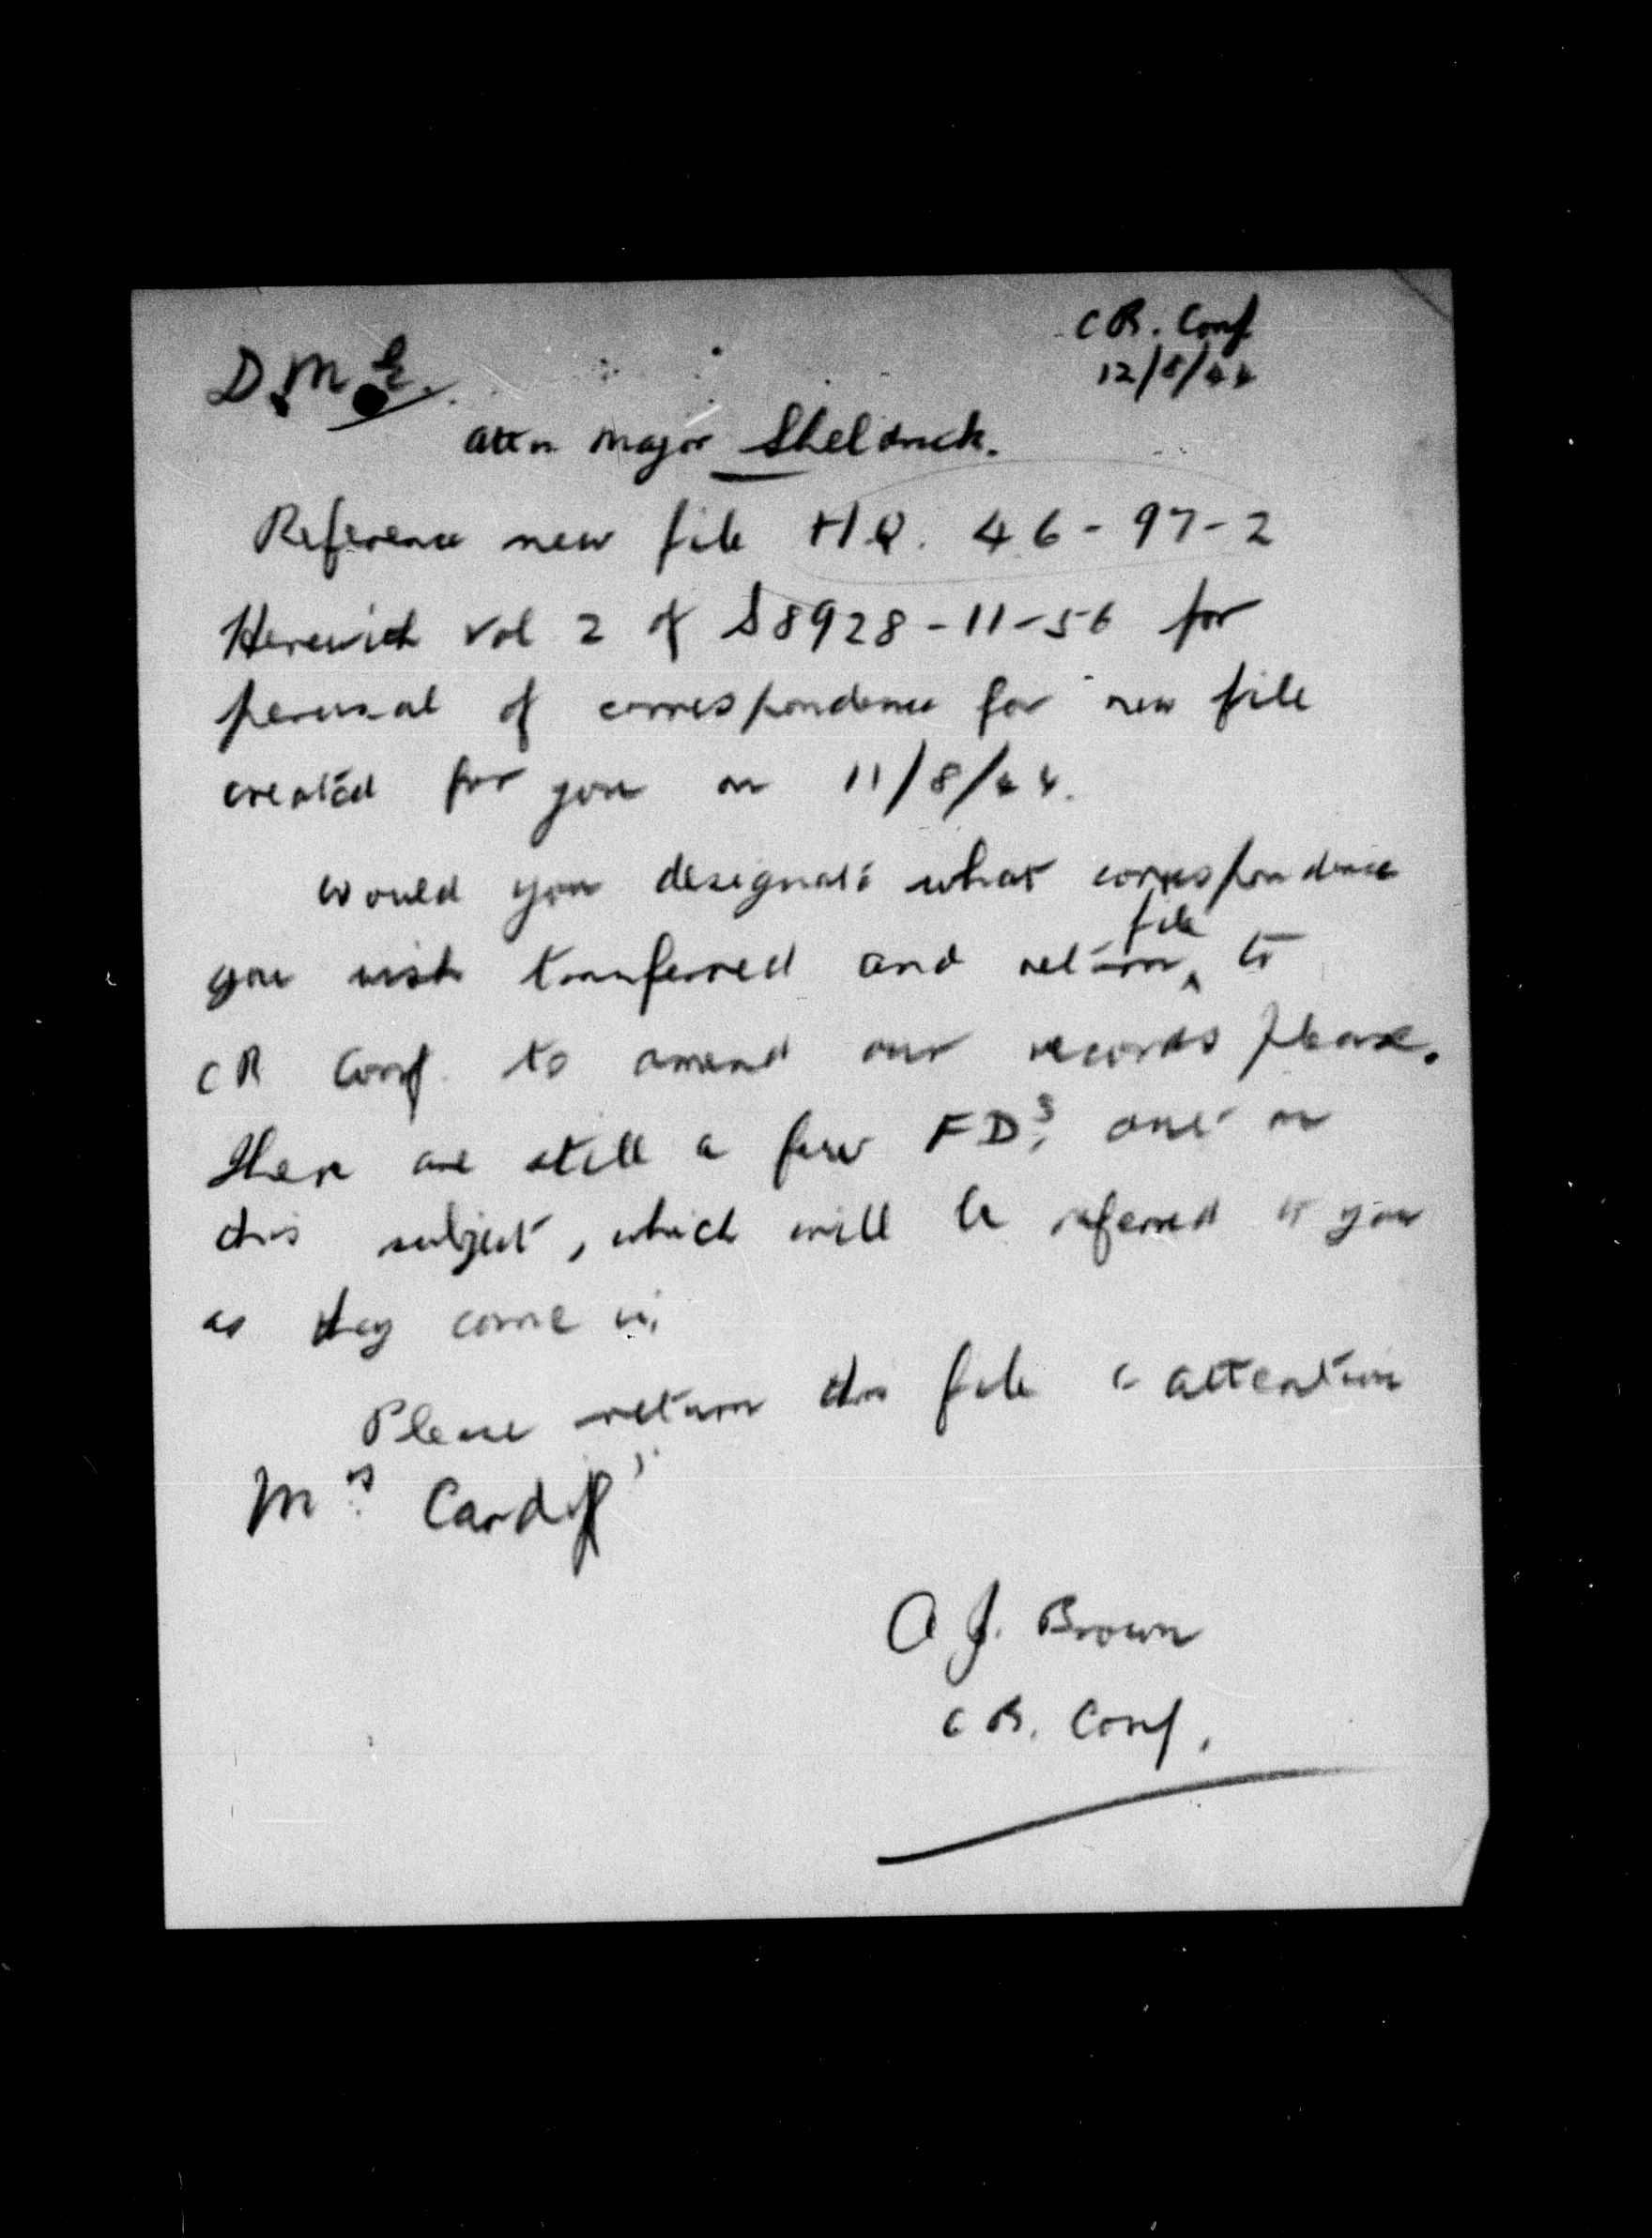 CR. Conf
12/8/44
D.M.E.
Attn Major Sheldrick.
Reference new file H.Q. 46-97-2
Herewith Vol 2 of S8928-11-56 for
perusal of correspondence for new file
created for you on 11/8/44.
Would you designate what correspondence
you wish transferred and return file to
CR Conf. to amend our records please.
There are still a few FDs out on
this subject, which will be referred to you
as they come in.
Please return this file to attention
Mrs Cardiff
A J. Brown
CR. Conf.